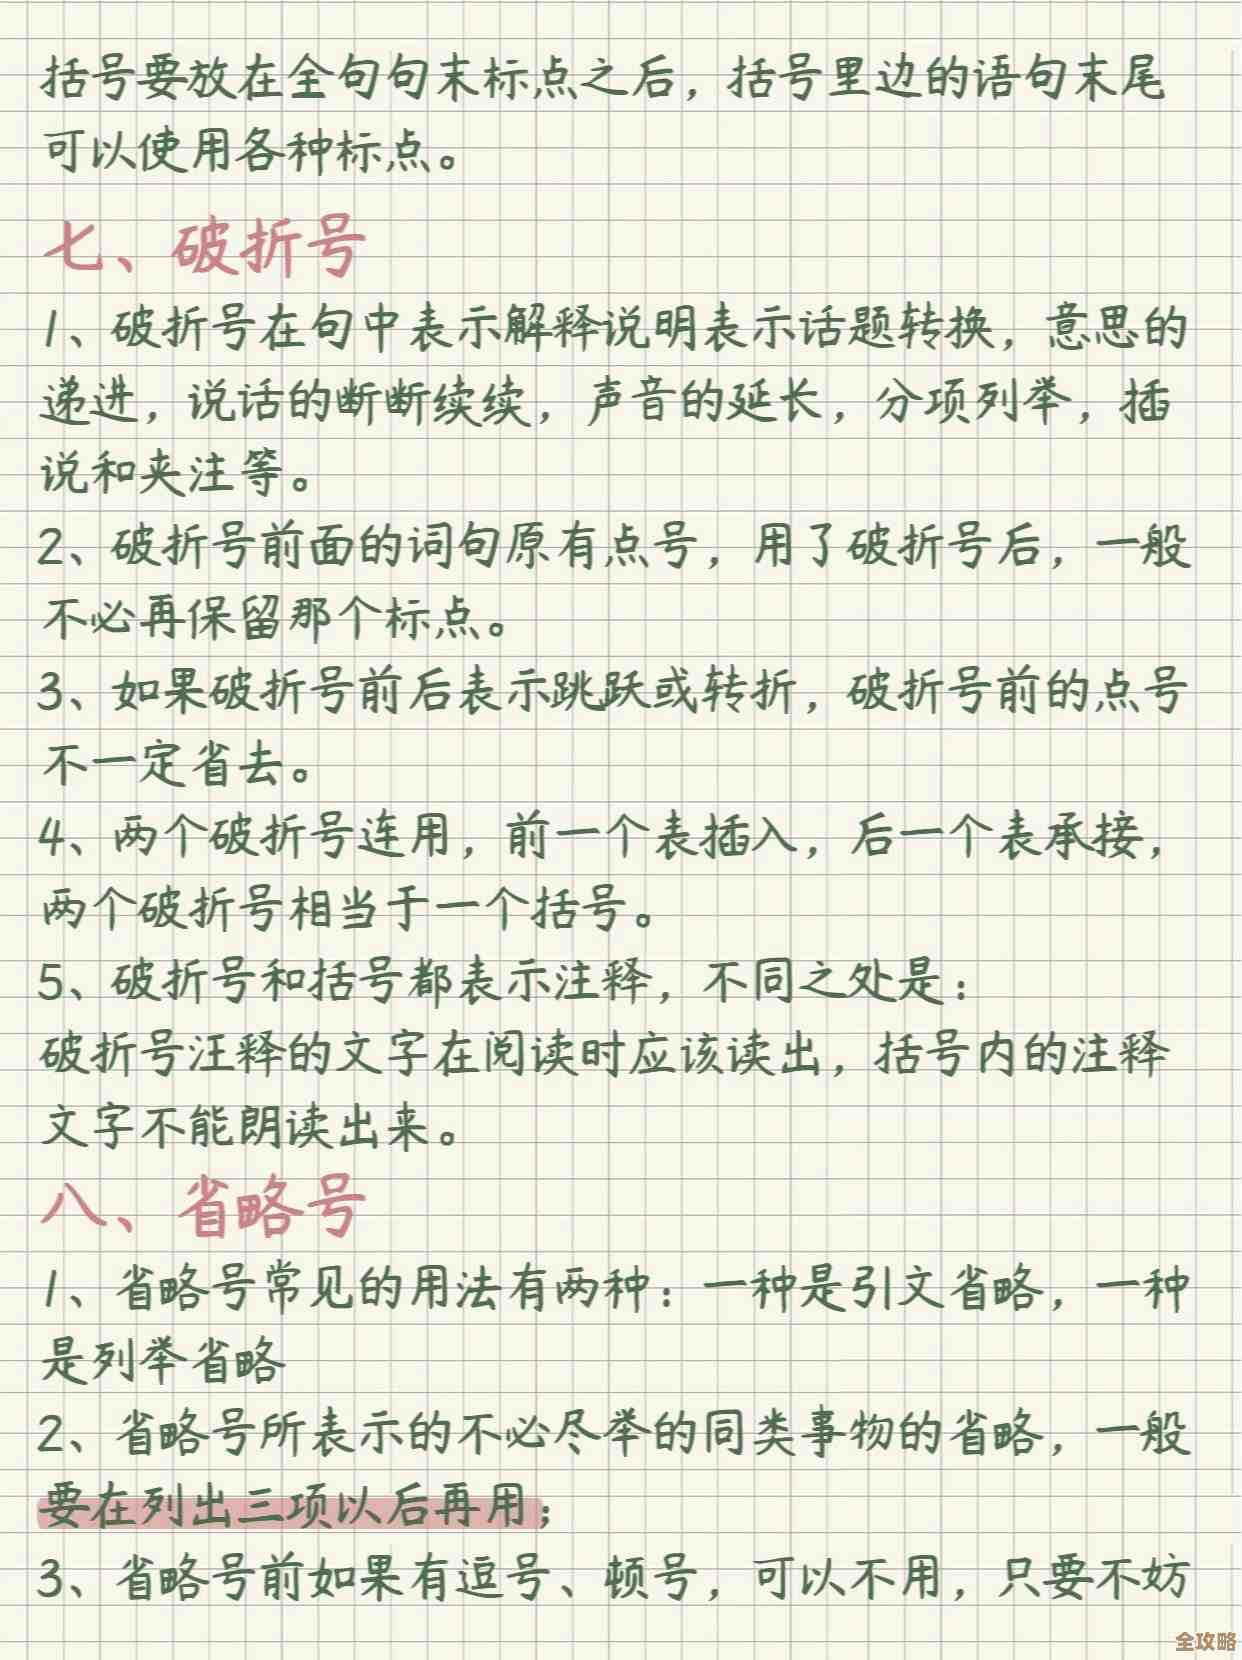 括号要放在全句句末标点之后，括号里边的语句末尾
可以使用各种标点。
七、破折号
1、破折号在句中表示解释说明表示话题转换，意思的
递进，说话的断断续续，声音的延长，分项列举，插
说和夹注等。
2、破折号前面的词句原有点号，用了破折号后，一般
不必再保留那个标点。
3、如果破折号前后表示跳跃或转折，破折号前的点号
不一定省去。
4、两个破折号连用，前一个表插入，后一个表承接，
两个破折号相当于一个括号。
5、破折号和括号都表示注释，不同之处是：
破折号汪释的文字在阅读时应该读出，括号内的注释
文字不能朗读出来。
八、省略号
1、省略号常见的用法有两种：一种是引文省略，一种
是列举省略
2、省略号所表示的不必尽举的同类事物的省略，一般
要在列出三项以后再用；
3、省略号前如果有逗号、顿号，可以不用，只要不妨
全攻略